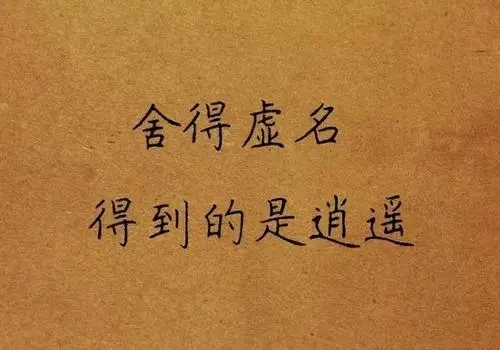 舍得虚名
得到的是逍遥